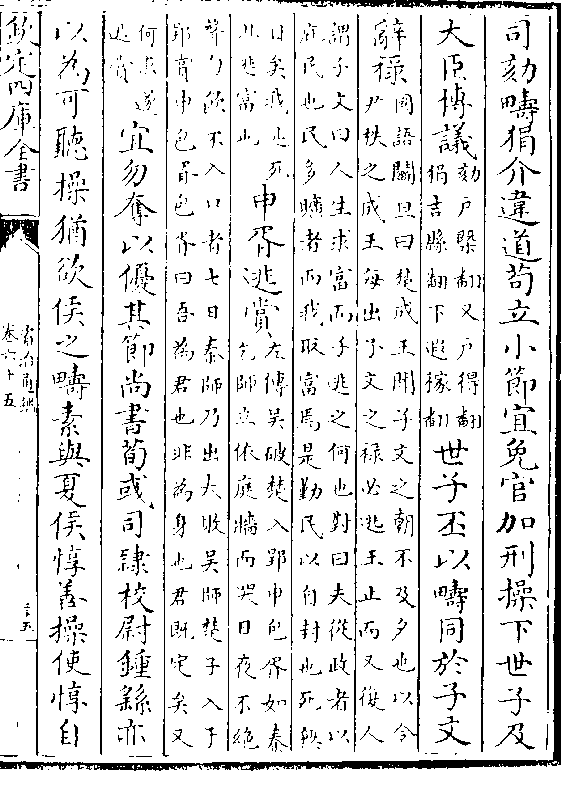 司劾疇狷介違道茍立小節宜免官加刑操下世子及
大臣博議
劾戶槩翻又戶得翻
狷吉縣翻下遐稼翻
世子丕以疇同於子文
辭祿
國語鬬且曰楚成王聞子文之朝不及夕也以令
尹秩之成王每出子文之祿必逃王止而又復人
謂子文曰人生求富而子逃之何也對曰夫從政者以
庇民也民多曠者而我取富焉是勤民以自封也死無
日矣我逃死
非逃富也
申胥逃賞
左傳吳破楚入郢申包胥如秦
乞師立依庭牆而哭日夜不絶
聲勺飲不入口者七日秦師乃出大敗吳師楚子入于
郢賞申包胥包胥曰吾為君也非為身也君既定矣又
何求遂
逃賞
宜勿奪以優其節尚書荀彧司隸校尉鍾繇亦
以為可聽操猶欲侯之疇素與夏侯惇善操使惇自
欽定四庫全書
資治通鑑
卷六十五